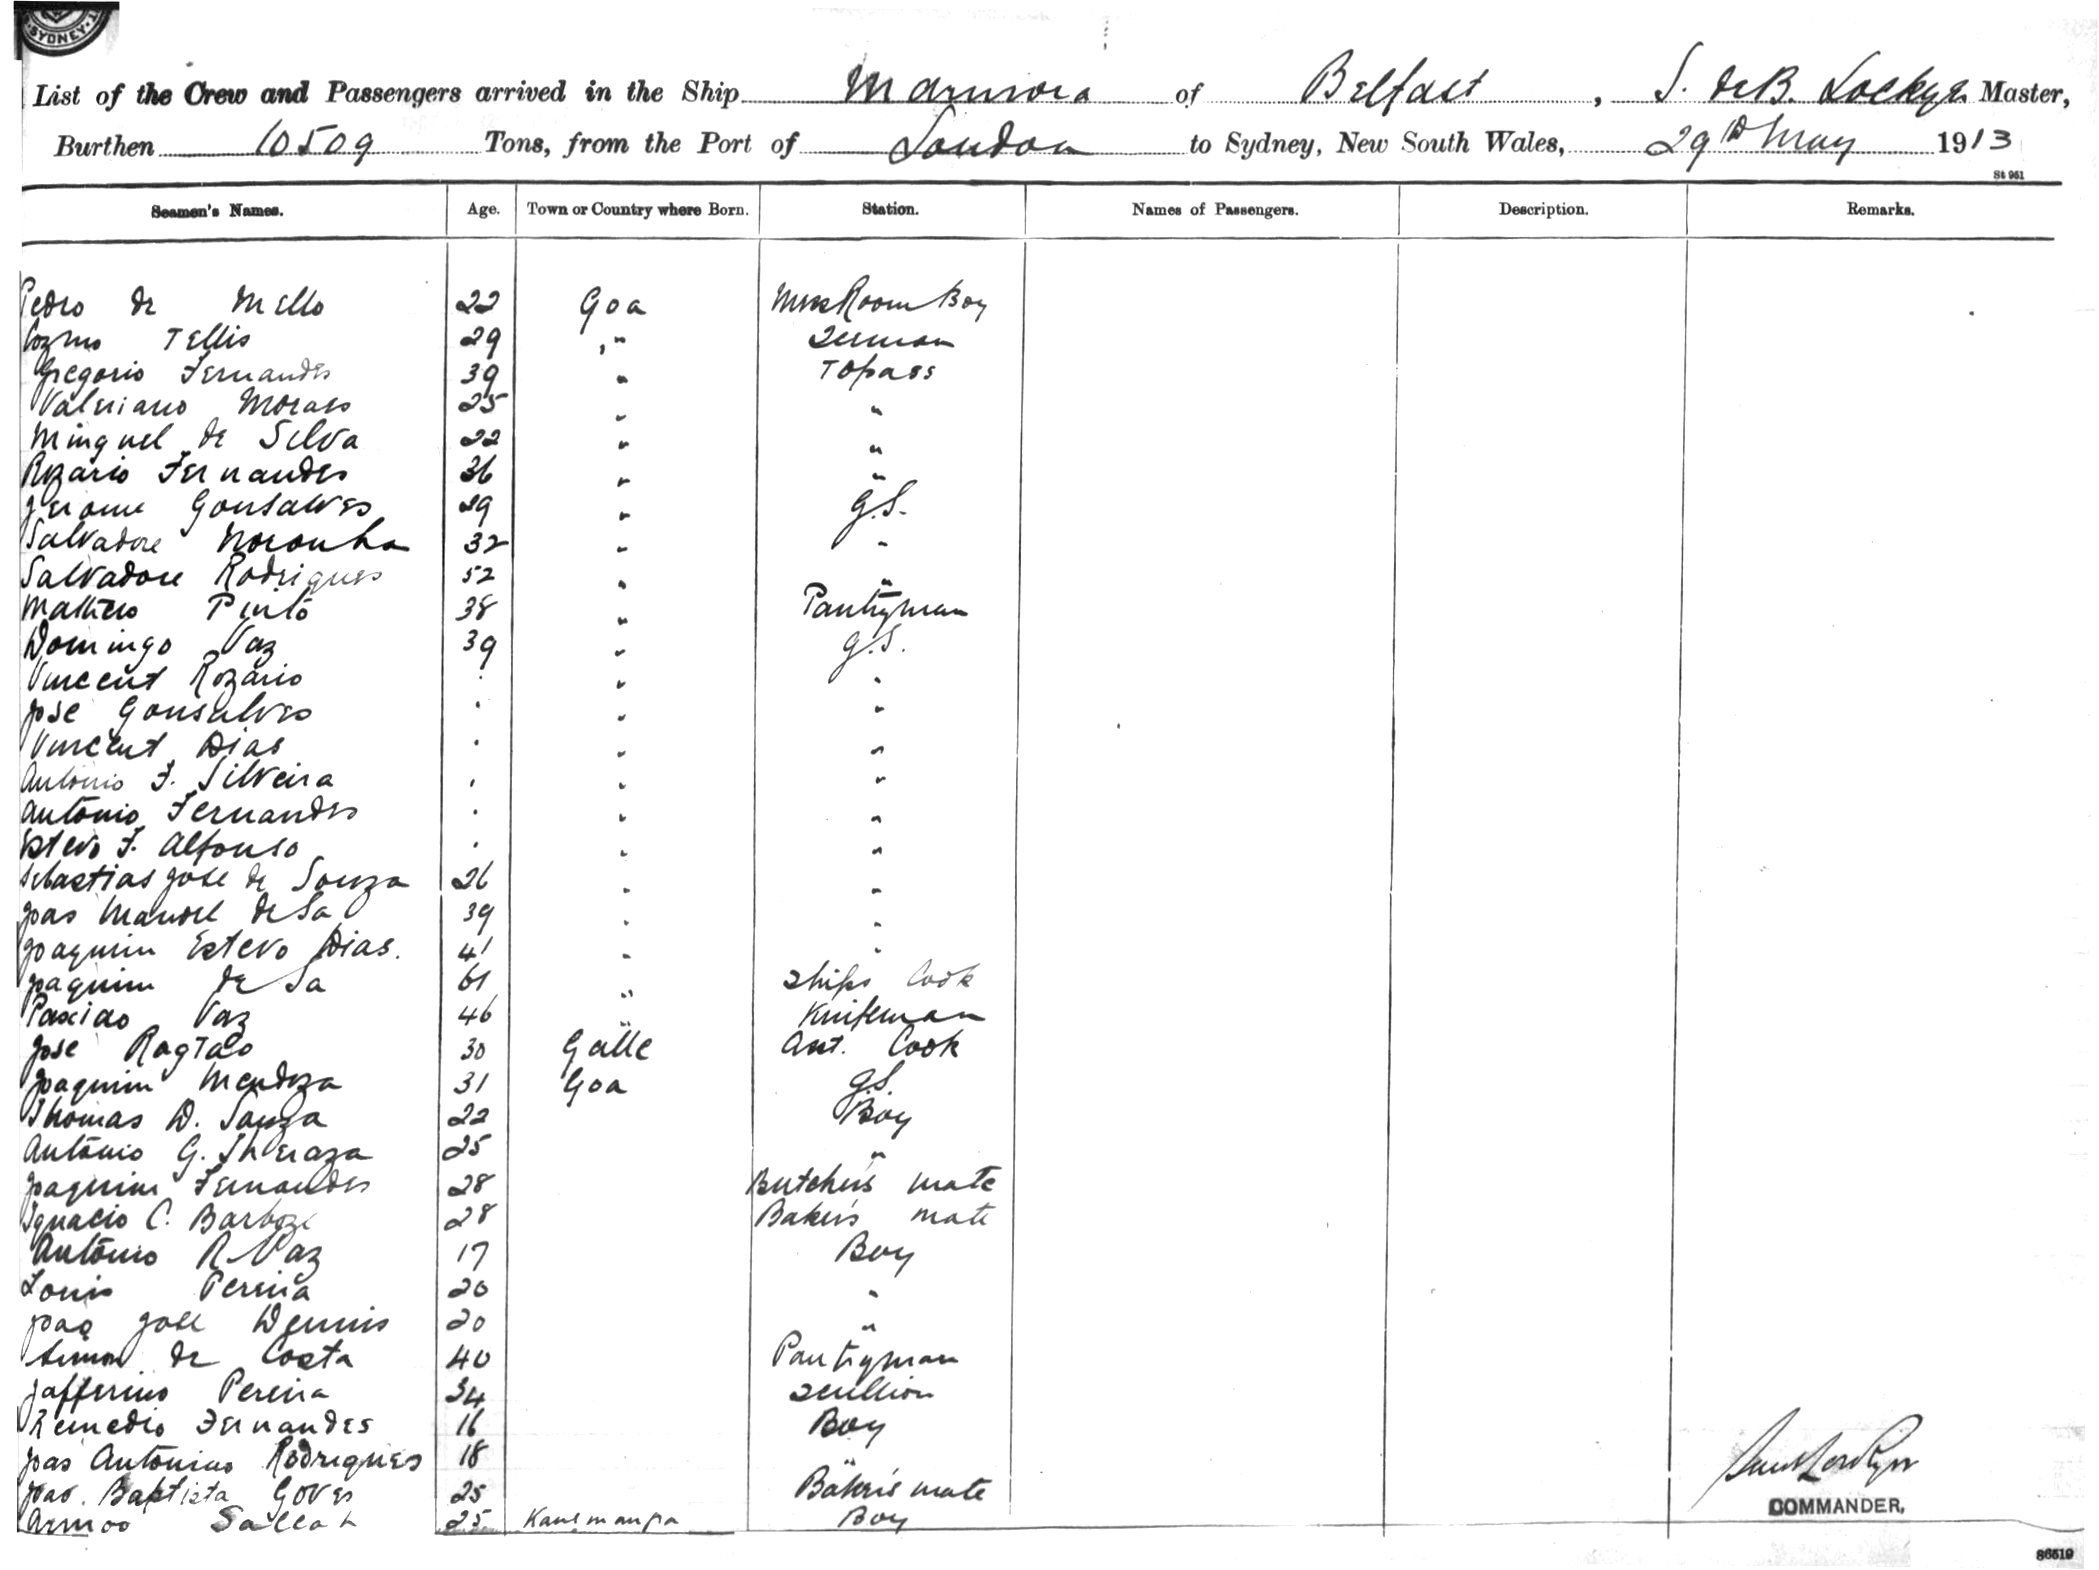 SYDNEY
List of the Crew and Passengers arrived in the Ship Marmora of Belfast, S. de B. Lockyer Master,
Burthen 10509 Tons, from the Port of London to Sydney, New South Wales, 29th May 1913
St 961
Seamen's Names. Age. Town or Country where Born. Station. Names of Passengers. Description. Remarks.
Pedro de Mello 22 Goa Mess Room Boy
Cozmo Tellis 29 " 
Gregorio Fernandes 39 " Topass
Valeriano Moraes 25 " "
Minguel de Silva 22 " "
Rozario Fernandes 36 " "
Jerome Gonsalves 29 " G.S.
Salvadore Noronha 32 " "
Salvadore Rodrigues 52 " "
Matheo Pinto 38 " Pantryman
Domingo Vaz 39 " G.S.
Vincent Rozario . " "
Jose Gonsalves . " "
Vincent Dias . " "
Antonio F. Silveira . " "
Antonio Fernandes . " "
Estevo F. Alfonso . " "
Sebastias Jose de Souza 26 " "
Joas Manoel de Sa 39 " "
Joaquim Estevo Dias. 41 " "
Joaquim de Sa 61 " Ships Cook
Vaz 46 " Knifeman
Jose 30 Galle Asst. Cook
Joaquim Mendoza 31 Goa G.S.
Thomas D. Souza 22 Boy
Antonio G. 25 "
Joaquim Fernandes 28 Butcher's mate
Ignacio C. Barboze 28 Baker's mate
Antonio R Vaz 17 Boy
Louis Pereira 20 "
Joao Jose Dennis 20 "
Simon de Costa 40 Pantryman
Jafferino Pereira 34 Scullion
Remedio Fernandes 16 Boy
Joas Antonino Rodrigues 18 "
Joao. Baptista Goves 25 Baker's mate
Armoo Sallah 25 Boy
COMMANDER,
86519